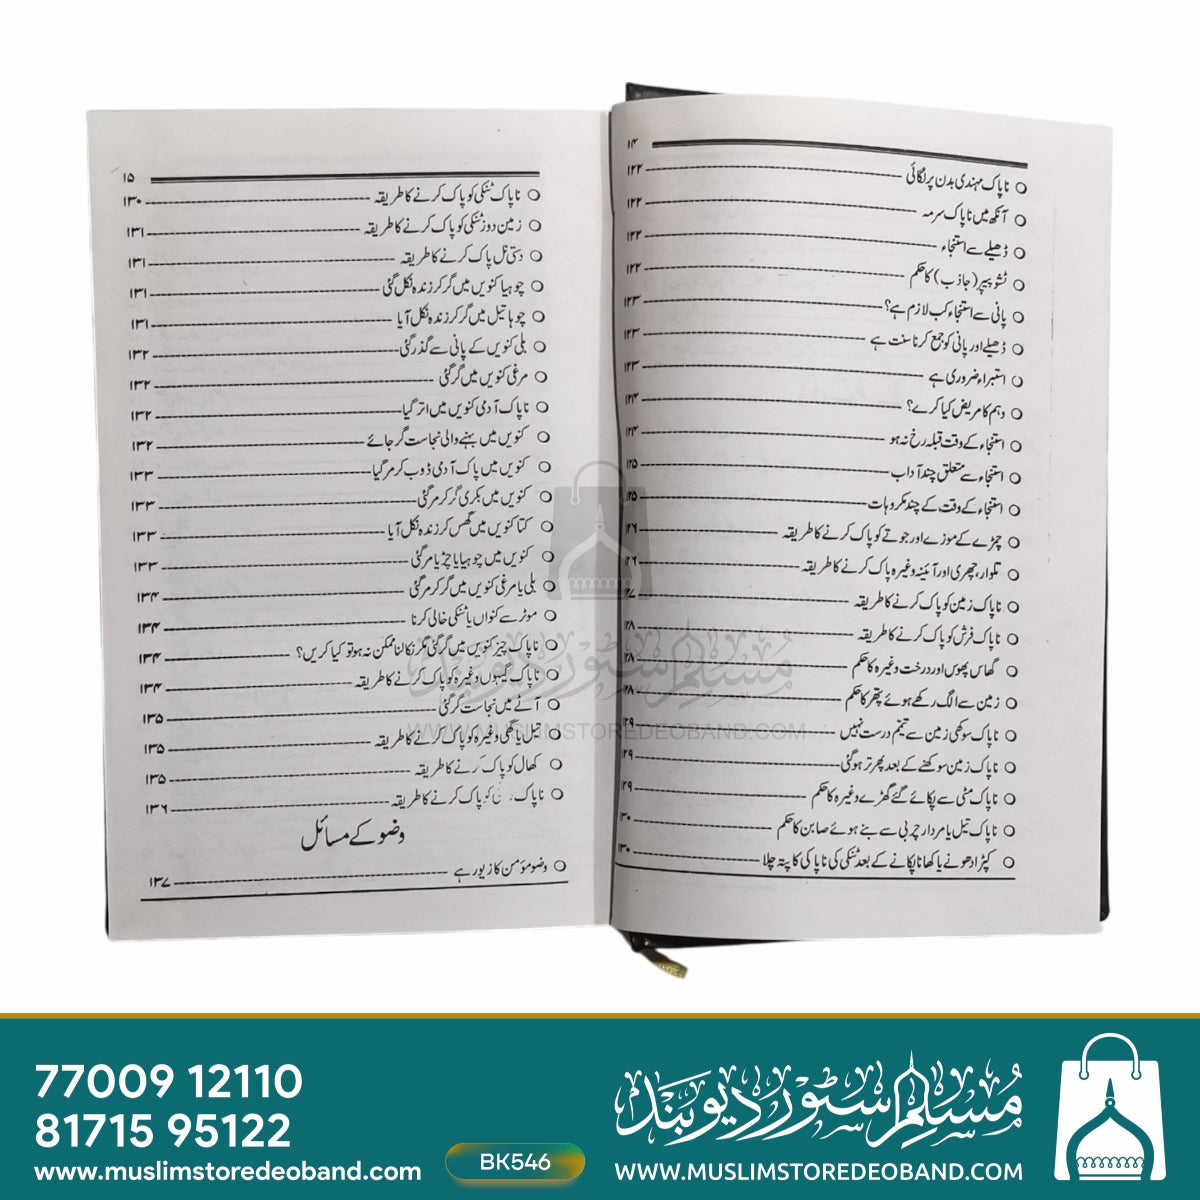 ۱۴
○ ناپاک مہندی بدن پر لگائی ---------- ۱۲۲
○ آنکھ میں ناپاک سرمہ ---------- ۱۲۲
○ ڈھیلے سے استنجاء ---------- ۱۲۲
○ ٹشو پیپر (جاذب) کا حکم ---------- ۱۲۲
○ پانی سے استنجاء کب لازم ہے؟ ---------- ۱۲۳
○ ڈھیلے اور پانی کو جمع کرنا سنت ہے ---------- ۱۲۳
○ استبراء ضروری ہے ---------- ۱۲۳
○ وہم کا مریض کیا کرے؟ ---------- ۱۲۴
○ استنجاء کے وقت قبلہ رخ نہ ہو ---------- ۱۲۴
○ استنجاء سے متعلق چند آداب ---------- ۱۲۵
○ استنجاء کے وقت کے چند مکروہات ---------- ۱۲۵
○ چمڑے کے موزے اور جوتے کو پاک کرنے کا طریقہ ---------- ۱۲۶
○ تلوار، چھری اور آئینہ وغیرہ پاک کرنے کا طریقہ ---------- ۱۲۶
○ ناپاک زمین کو پاک کرنے کا طریقہ ---------- ۱۲۷
○ ناپاک فرش کو پاک کرنے کا طریقہ ---------- ۱۲۸
○ گھاس پھوس اور درخت وغیرہ کا حکم ---------- ۱۲۸
○ زمین سے الگ رکھے ہوئے پتھر کا حکم ---------- ۱۲۸
○ ناپاک سوکھی زمین سے تیمم درست نہیں ---------- ۱۲۹
○ ناپاک زمین سوکھنے کے بعد پھر تر ہو گئی ---------- ۱۲۹
○ ناپاک مٹی سے پکائے گئے گھڑے وغیرہ کا حکم ---------- ۱۲۹
○ ناپاک تیل یا مردار چربی سے بنے ہوئے صابن کا حکم ---------- ۱۳۰
○ کپڑا دھونے یا کھانا پکانے کے بعد ٹنکی کی ناپاکی کا پتہ چلا ---------- ۱۳۰
۱۵
○ ناپاک ٹنکی کو پاک کرنے کا طریقہ ---------- ۱۳۰
○ زمین دوز ٹنکی کو پاک کرنے کا طریقہ ---------- ۱۳۱
○ دستی نل پاک کرنے کا طریقہ ---------- ۱۳۱
○ چوہیا کنویں میں گر کر زندہ نکل گئی ---------- ۱۳۱
○ چوہا تیل میں گر کر زندہ نکل آیا ---------- ۱۳۱
○ بلی کنویں کے پانی سے گذر گئی ---------- ۱۳۲
○ مرغی کنویں میں گر گئی ---------- ۱۳۲
○ ناپاک آدمی کنویں میں اتر گیا ---------- ۱۳۲
○ کنویں میں بہنے والی نجاست گر جائے ---------- ۱۳۲
○ کنویں میں پاک آدمی ڈوب کر مر گیا ---------- ۱۳۳
○ کنویں میں بکری گر کر مر گئی ---------- ۱۳۳
○ کتا کنویں میں گھس کر زندہ نکل آیا ---------- ۱۳۳
○ کنویں میں چوہیا یا چڑیا مر گئی ---------- ۱۳۳
○ بلی یا مرغی کنویں میں گر کر مر گئی ---------- ۱۳۴
○ موٹر سے کنواں یا ٹنکی خالی کرنا ---------- ۱۳۴
○ ناپاک چیز کنویں میں گر گئی مگر نکالنا ممکن نہ ہو تو کیا کریں؟ ---------- ۱۳۴
○ ناپاک گیہوں وغیرہ کو پاک کرنے کا طریقہ ---------- ۱۳۴
○ آٹے میں نجاست گر گئی ---------- ۱۳۵
○ تیل یا گھی وغیرہ کو پاک کرنے کا طریقہ ---------- ۱۳۵
○ کھال کو پاک کرنے کا طریقہ ---------- ۱۳۵
○ ناپاک کو پاک کرنے کا طریقہ ---------- ۱۳۶
وضو کے مسائل
○ وضو مؤمن کا زیور ہے ---------- ۱۳۷
مسلم سٹور دیوبند
WWW.MUSLIMSTOREDEOBAND.COM
77009 12110
81715 95122
www.muslimstoredeoband.com
BK546
مسلم سٹور دیوبند
WWW.MUSLIMSTOREDEOBAND.COM